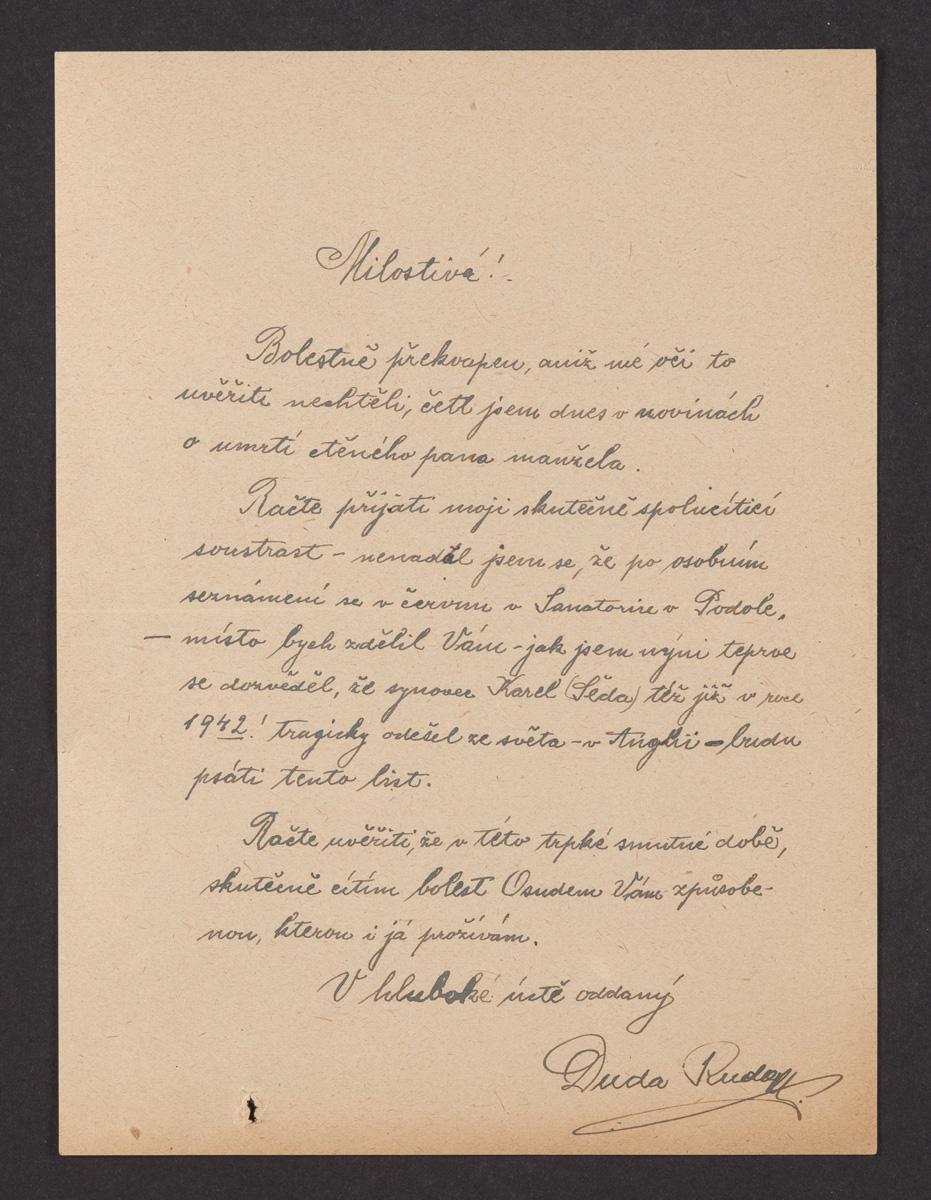 Milostivá!
Bolestně překvapen, aniž mé oči to
uvěřiti nechtěli, četl jsem dnes v novinách
o umrtí ctěného pana manžela.
Račte přijati moji skutečně spolucíticí
soustrast - nenadál jsem se, že po osobním
seznámení se v červnu v Sanatoriu v Podole,
— místo bych zdělil Vám - jak jsem nýni teprve
se dozvěděl, že synovec Karel (Šéda) též již v roce
1942! tragicky odešel ze světa - v Anglii - budu
psáti tento list.
Račte uvěřiti, že v této trpké smutné době,
skutečně cítím bolest Osudem Vám způsobe-
nou, kterou i já prožívám.
V hluboké úctě oddaný
Duda Rudolf.